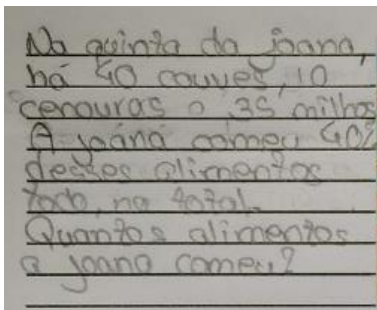 Na quinta da joana,
há 40 couves, 10
cenouras e 35 milhos
A joana comeu 40%
desses alimentos
todo, no total.
Quantos alimentos
a joana comeu?